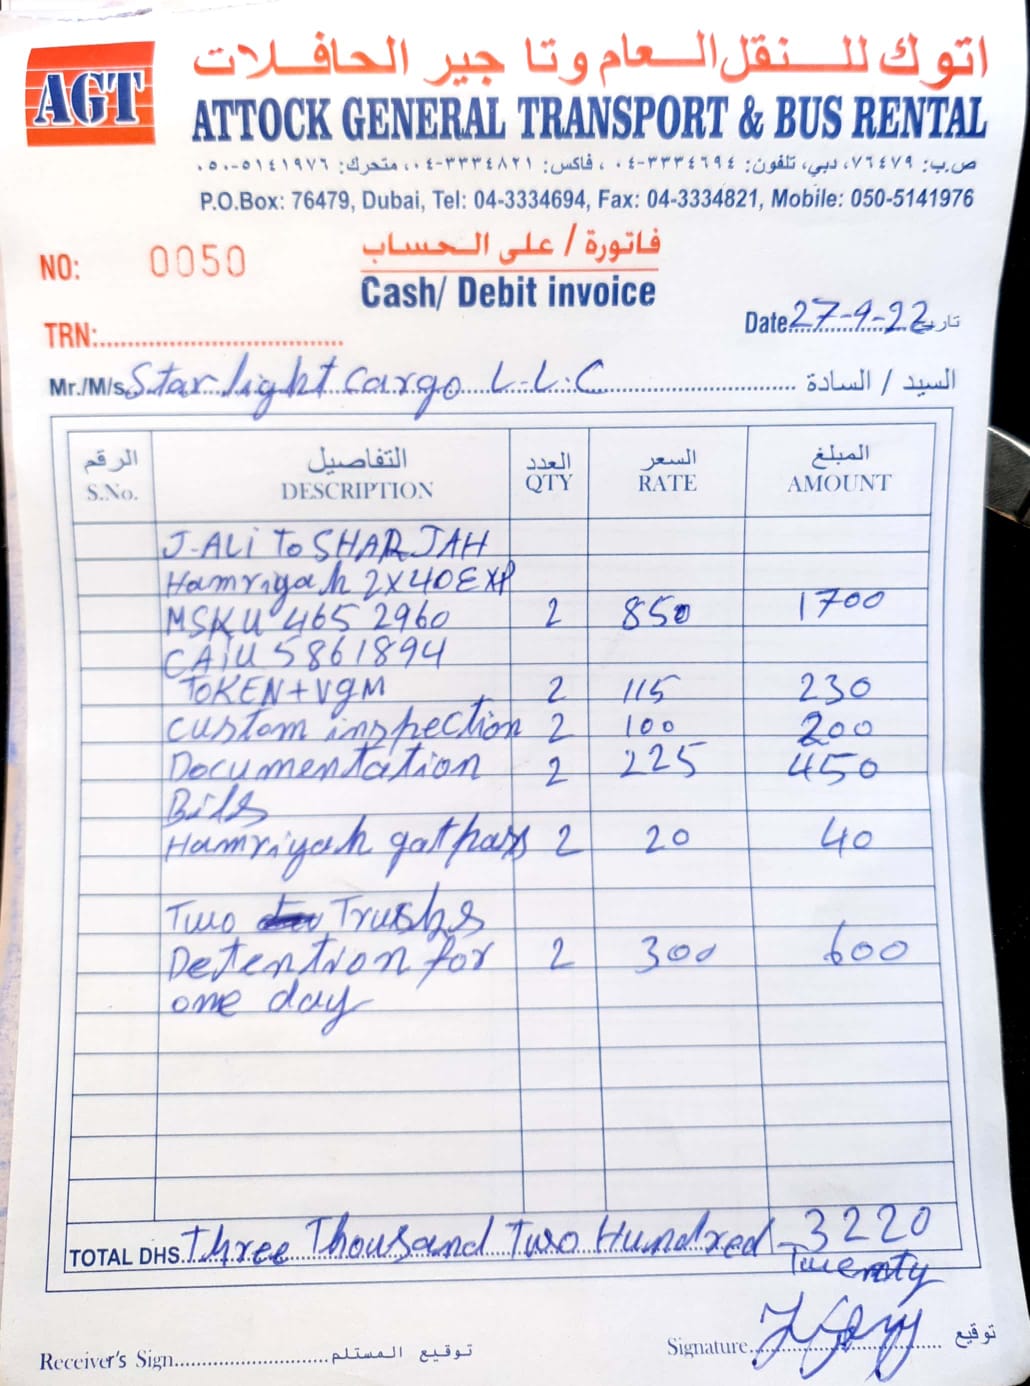 AGT
اتوك للنقل العام وتاجير الحافلات
ATTOCK GENERAL TRANSPORT & BUS RENTAL
ص.ب: ٧٦٤٧٩، دبي، تلفون: ٣٣٣٤٦٩٤-٠٤، فاكس: ٣٣٣٤٨٢١-٠٤، متحرك: ٥١٤١٩٧٦-٠٥٠
P.O.Box: 76479, Dubai, Tel: 04-3334694, Fax: 04-3334821, Mobile: 050-5141976
NO: 0050
فاتورة / على الحساب
Cash/ Debit invoice
TRN:
Date 27-9-22 تاريخ
Mr./M/s. Star light Cargo L.L.C السيد / السادة
الرقم التفاصيل العدد السعر المبلغ
S.No. DESCRIPTION QTY RATE AMOUNT
J-ALI To SHARJAH
Hamriyah 2X40EXP
MSKU 465 2960 2 850 1700
CAIU 5861894
ToKEN+VGM 2 115 230
Custom inspection 2 100 200
Documentation 2 225 450
Bills
Hamriyah gatpass 2 20 40
Two Trucks
Detention for 2 300 600
one day
TOTAL DHS. Three Thousand Two Hundred 3220
Twenty
Receiver's Sign. توقيع المستلم Signature توقيع